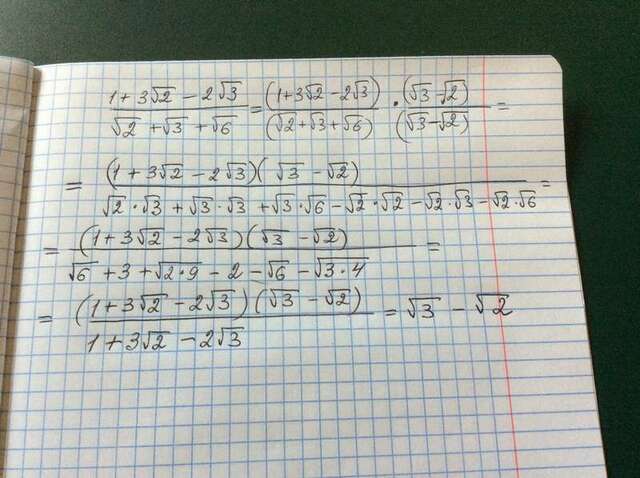 (1+3√2 −2√3)/(√2 +√3 +√6) = (1+3√2 −2√3)/(√2+√3+√6) • (√3 −√2)/(√3−√2) =
= (1+3√2 −2√3)(√3 −√2)/(√2•√3 +√3•√3 +√3•√6 −√2•√2 −√2•√3 −√2•√6) =
= (1+3√2 −2√3)(√3 −√2)/(√6 +3 +√2•9 −2 −√6 −√3•4) =
= (1+3√2 −2√3)(√3 −√2)/(1+3√2 −2√3) = √3 −√2